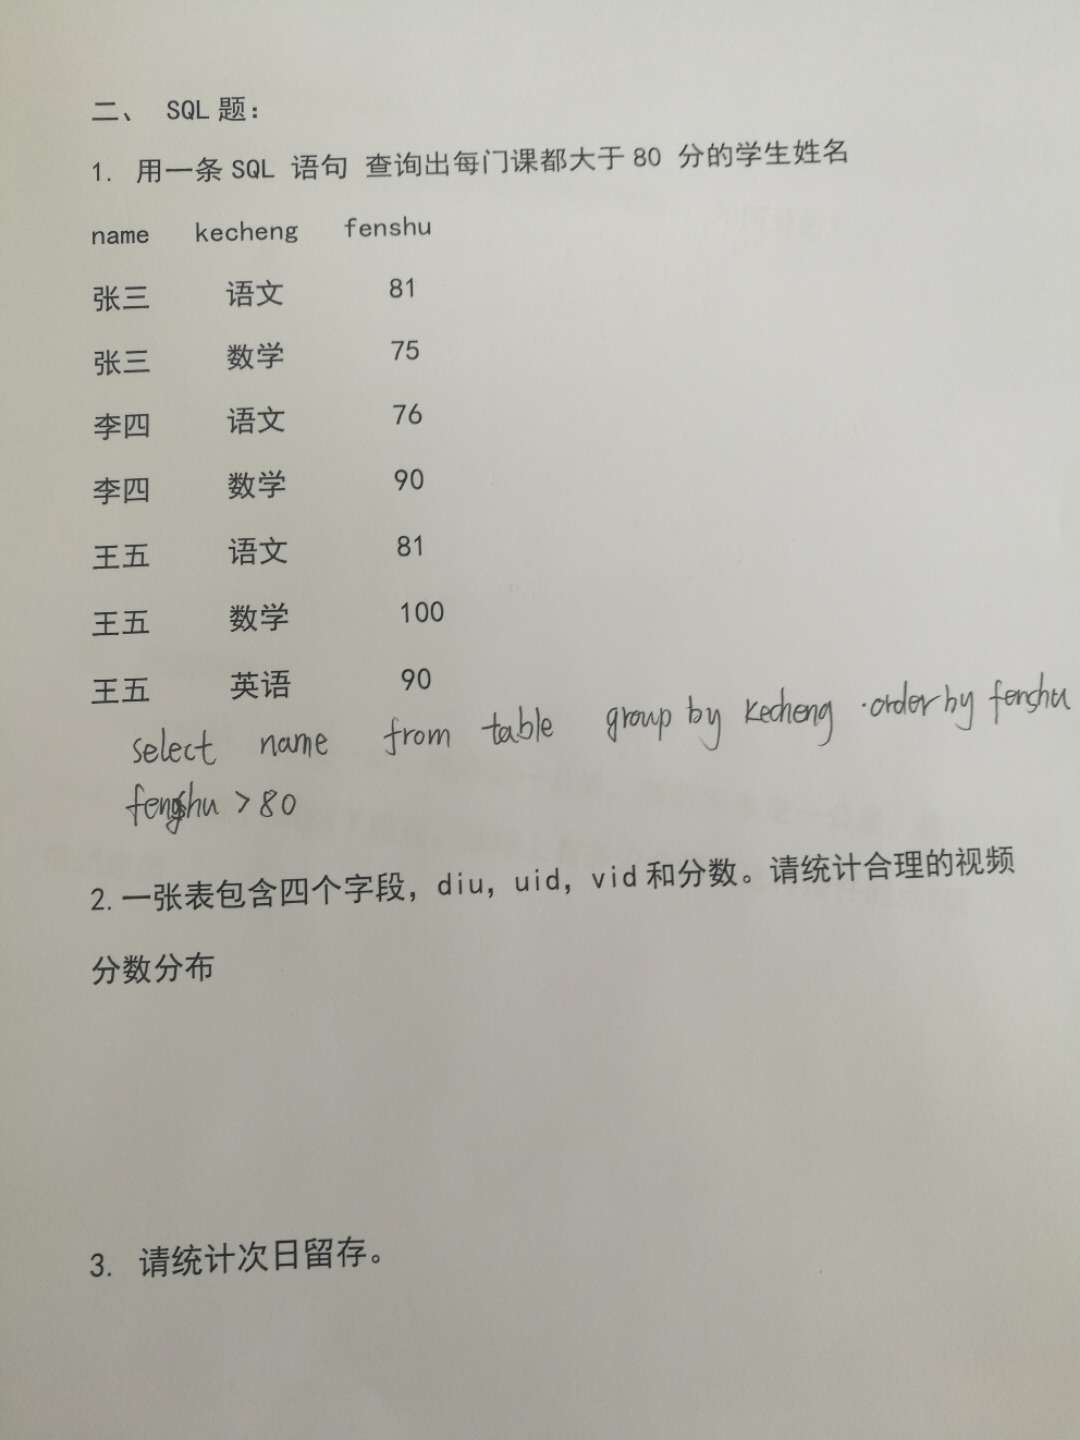 二、 SQL 题：
1. 用一条 SQL 语句 查询出每门课都大于 80 分的学生姓名
name kecheng fenshu
张三 语文 81
张三 数学 75
李四 语文 76
李四 数学 90
王五 语文 81
王五 数学 100
王五 英语 90
select name from table group by kecheng .order by fenshu
fengshu > 80
2. 一张表包含四个字段，diu，uid，vid 和分数。请统计合理的视频
分数分布
3. 请统计次日留存。